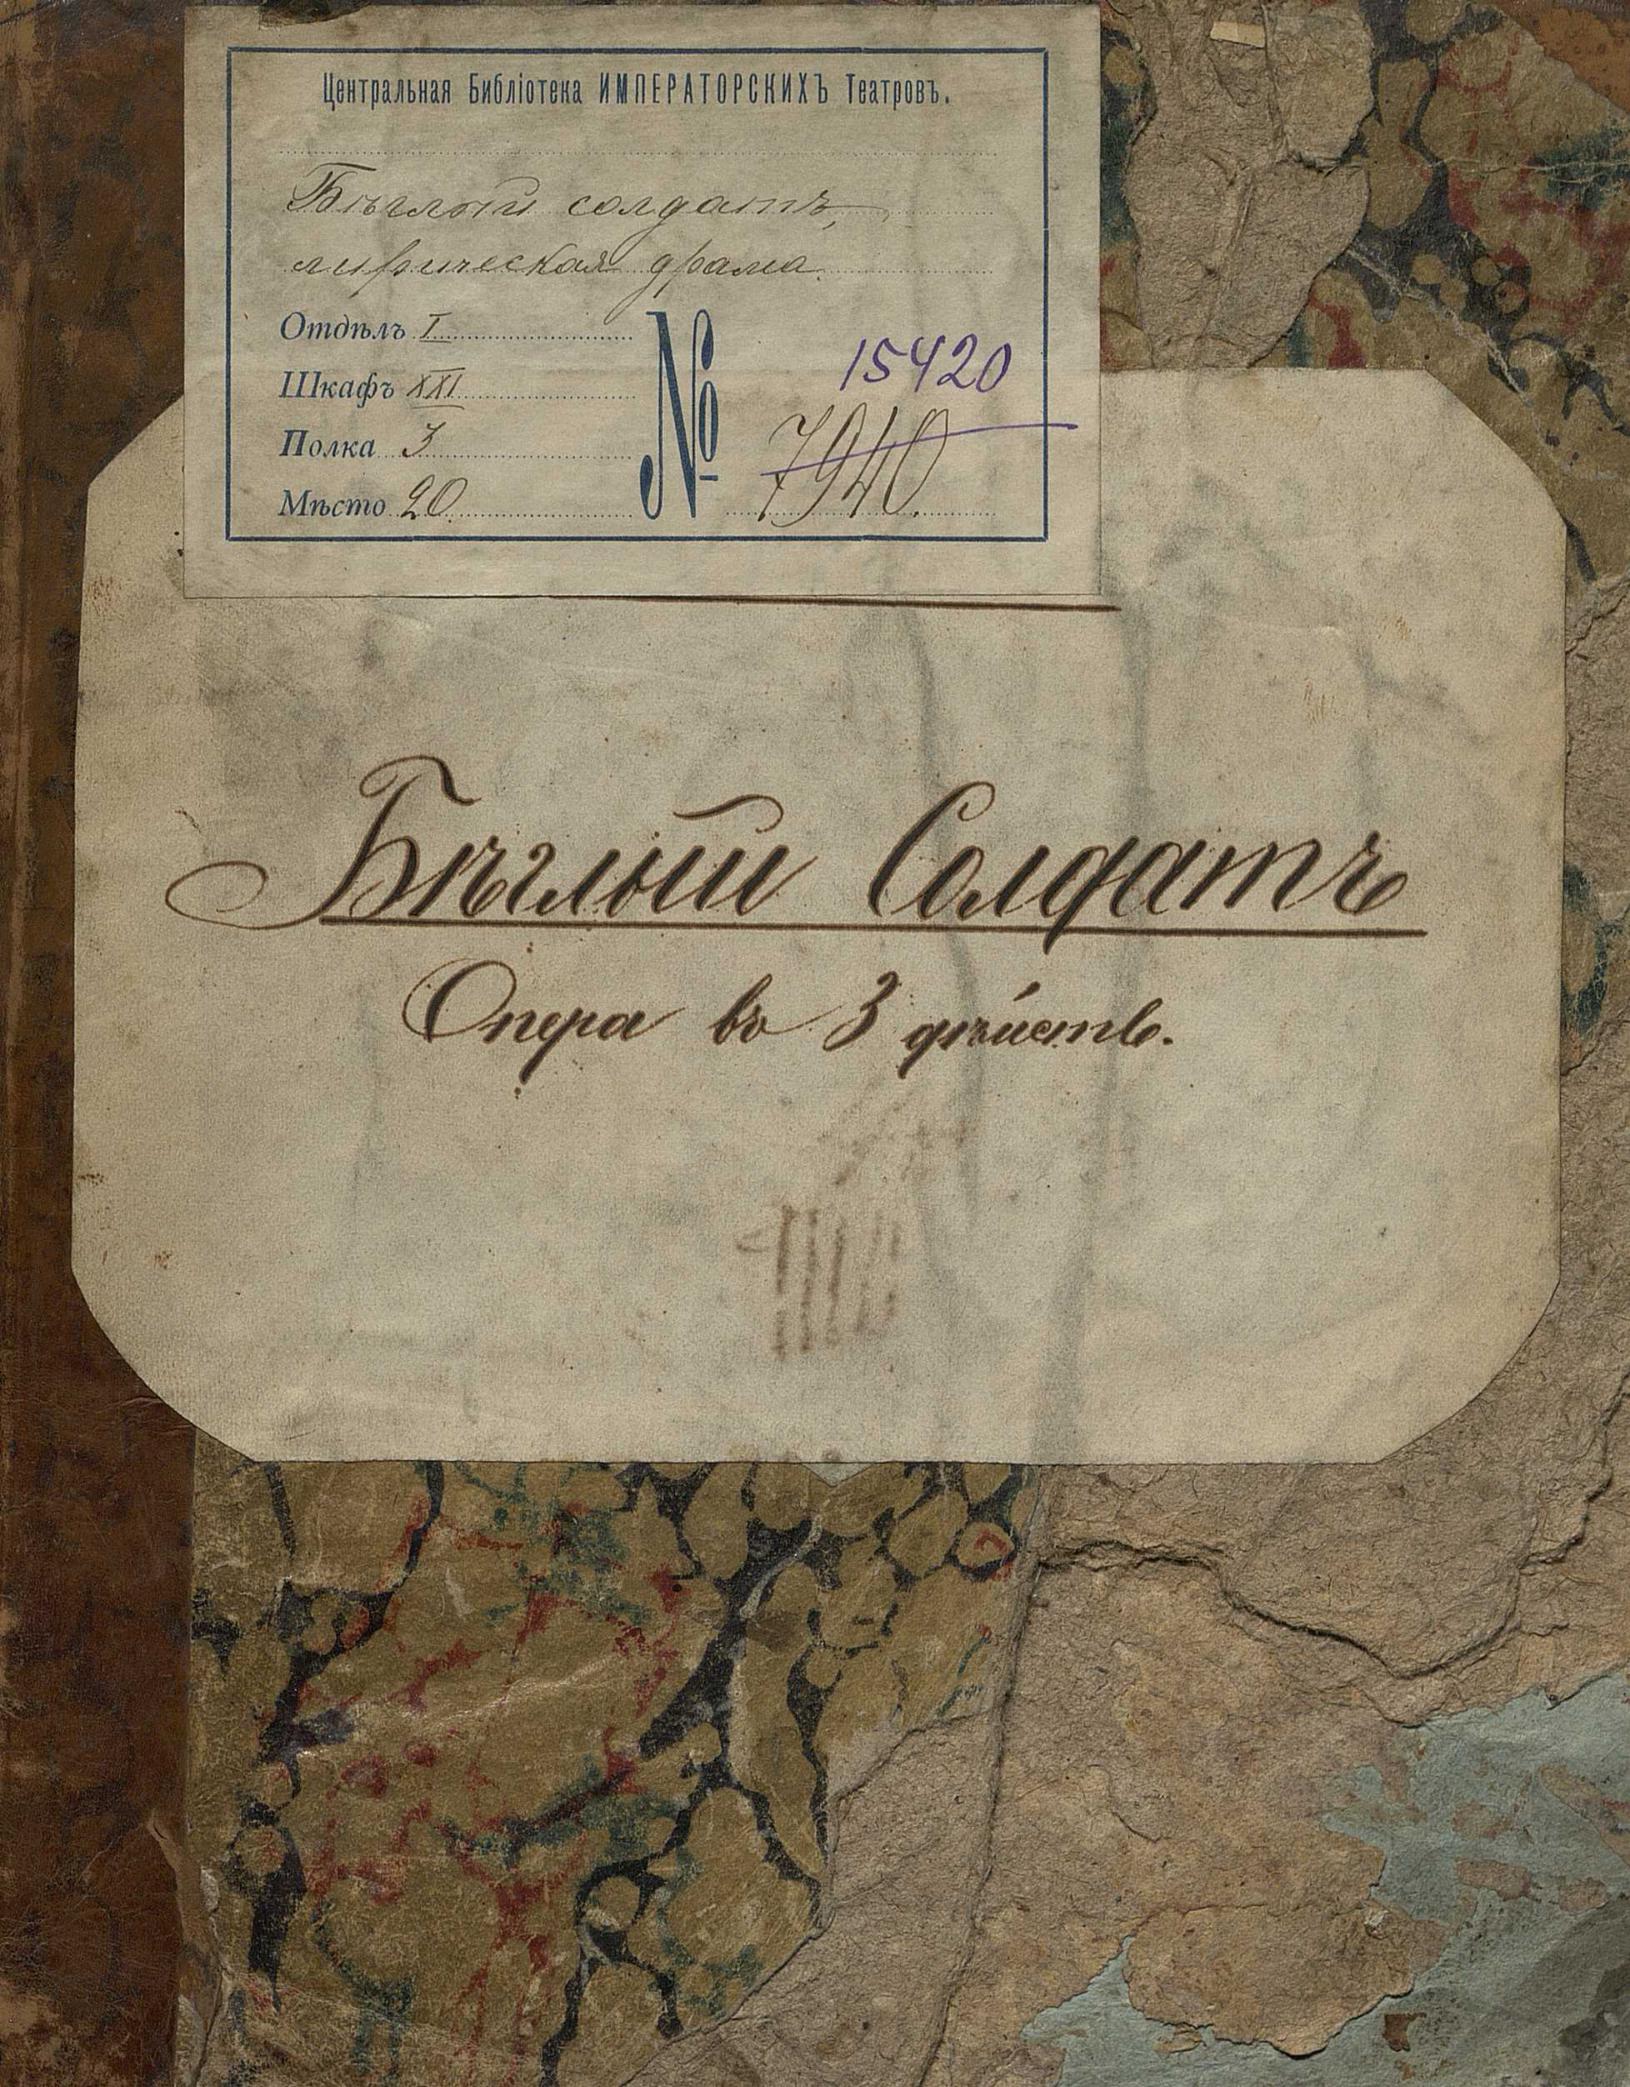 Центральная Библіотека ИМПЕРАТОРСКИХЪ Театровъ.
Бѣглый солдатъ,
лирическая драма.
Отдѣлъ I
Шкафъ XXI
Полка 3
Мѣсто 20.
№ 15420
7940.
Бѣглый Солдатъ
Опера въ 3 дѣйств.